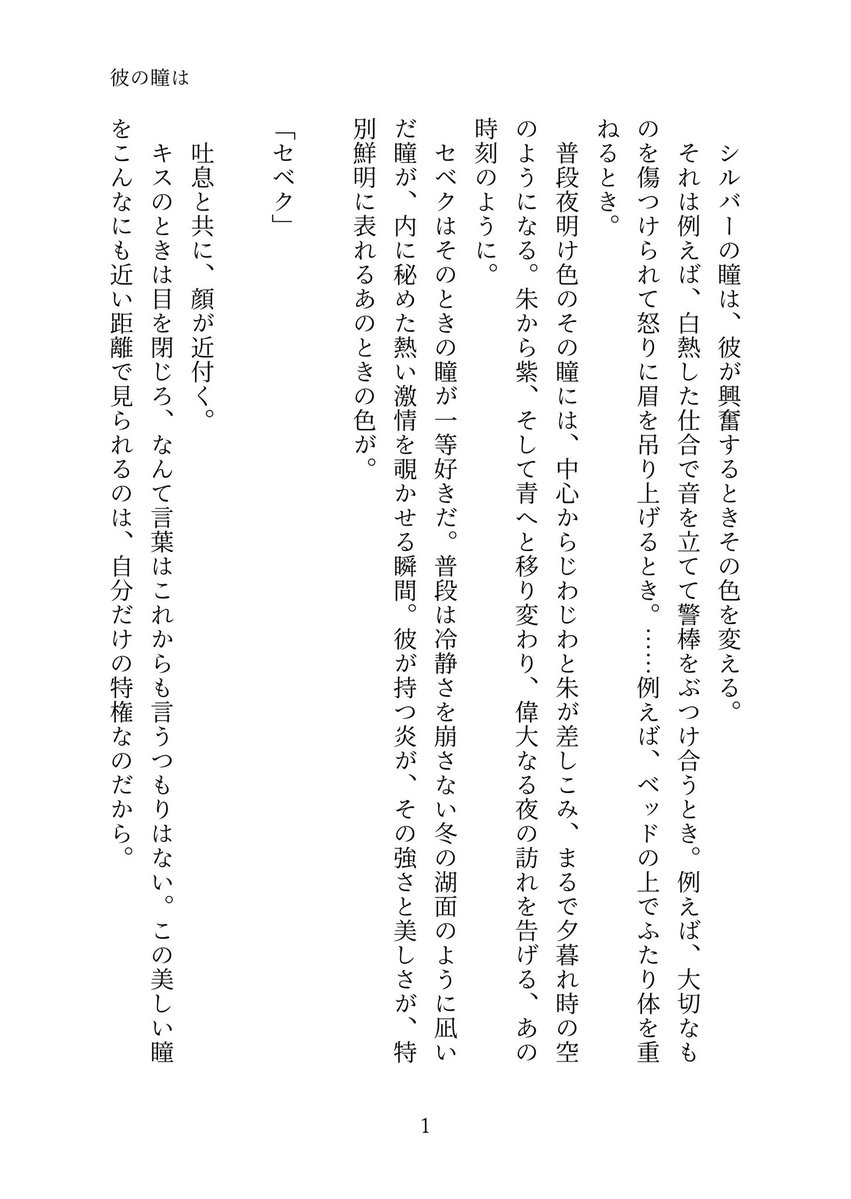 彼の瞳は
シルバーの瞳は、彼が興奮するときその色を変える。
それは例えば、白熱した仕合で音を立てて警棒をぶつけ合うとき。例えば、大切なも
のを傷つけられて怒りに眉を吊り上げるとき。……例えば、ベッドの上でふたり体を重
ねるとき。
普段夜明け色のその瞳には、中心からじわじわと朱が差しこみ、まるで夕暮れ時の空
のようになる。朱から紫、そして青へと移り変わり、偉大なる夜の訪れを告げる、あの
時刻のように。
セベクはそのときの瞳が一等好きだ。普段は冷静さを崩さない冬の湖面のように凪い
だ瞳が、内に秘めた熱い激情を覗かせる瞬間。彼が持つ炎が、その強さと美しさが、特
別鮮明に表れるあのときの色が。
「セベク」
吐息と共に、顔が近付く。
キスのときは目を閉じろ、なんて言葉はこれからも言うつもりはない。この美しい瞳
をこんなにも近い距離で見られるのは、自分だけの特権なのだから。
1